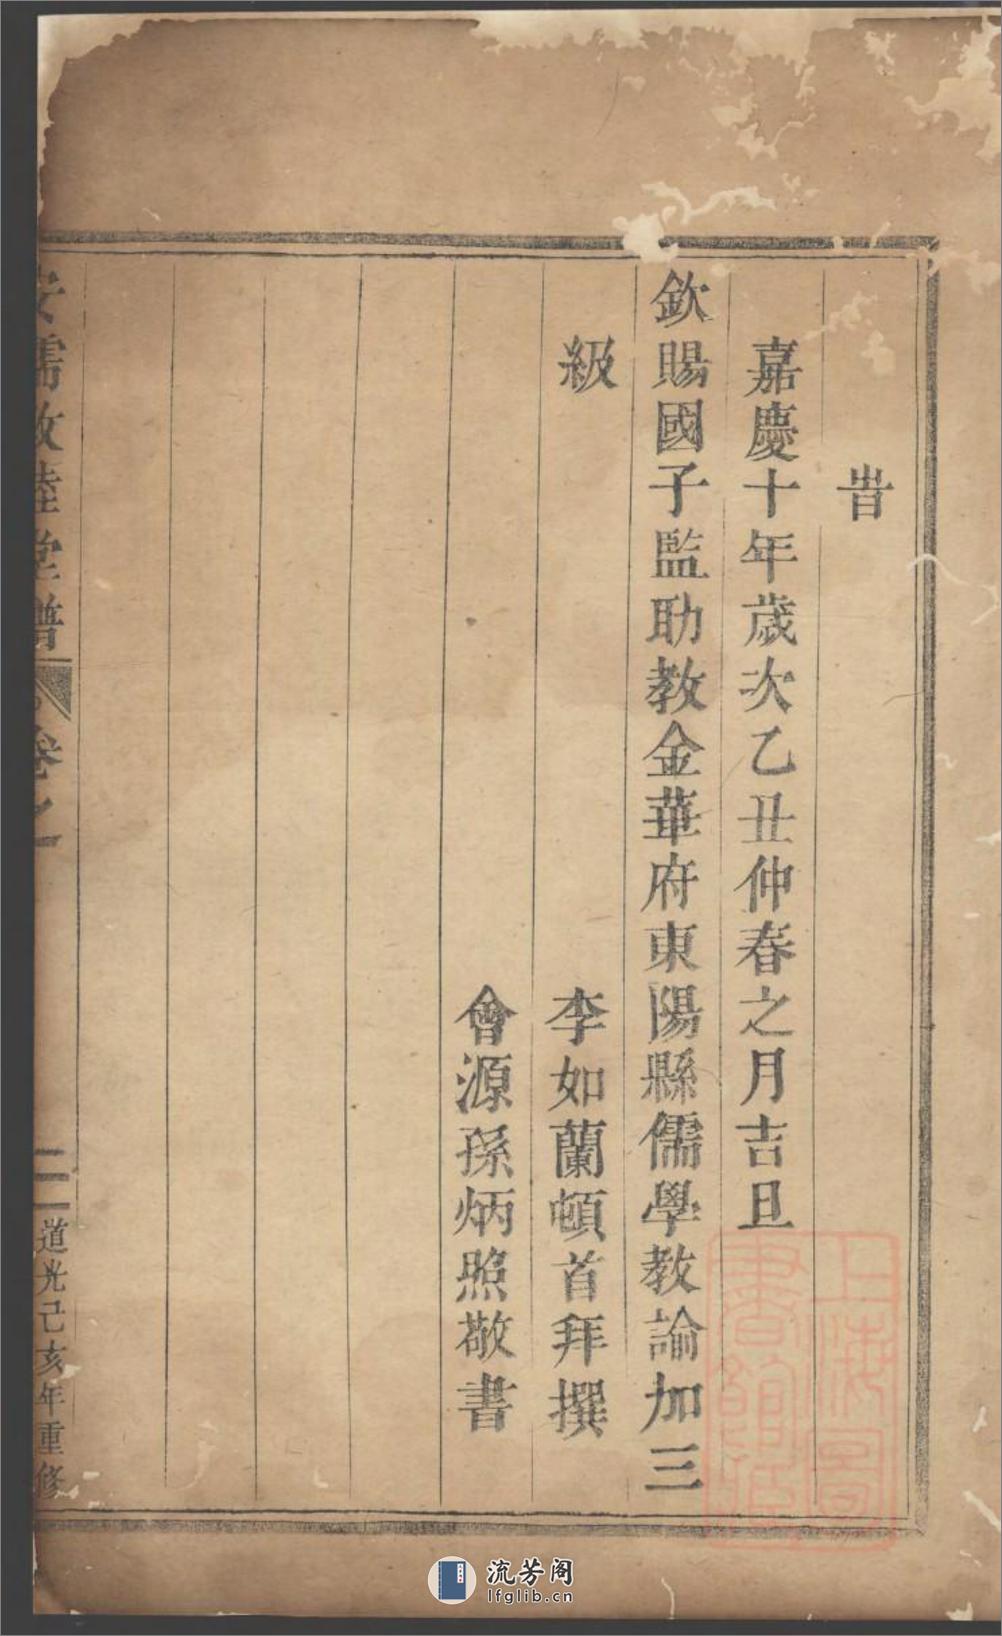 旹
嘉慶十年歲次乙丑仲春之月吉旦
欽賜國子監助教金華府東陽縣儒學教諭加三
級
李如蘭頓首拜撰
會源孫炳照敬書
睦堂譜
卷之一
二
道光己亥年重修
上海圖書館藏
流芳阁
lfglib.cn